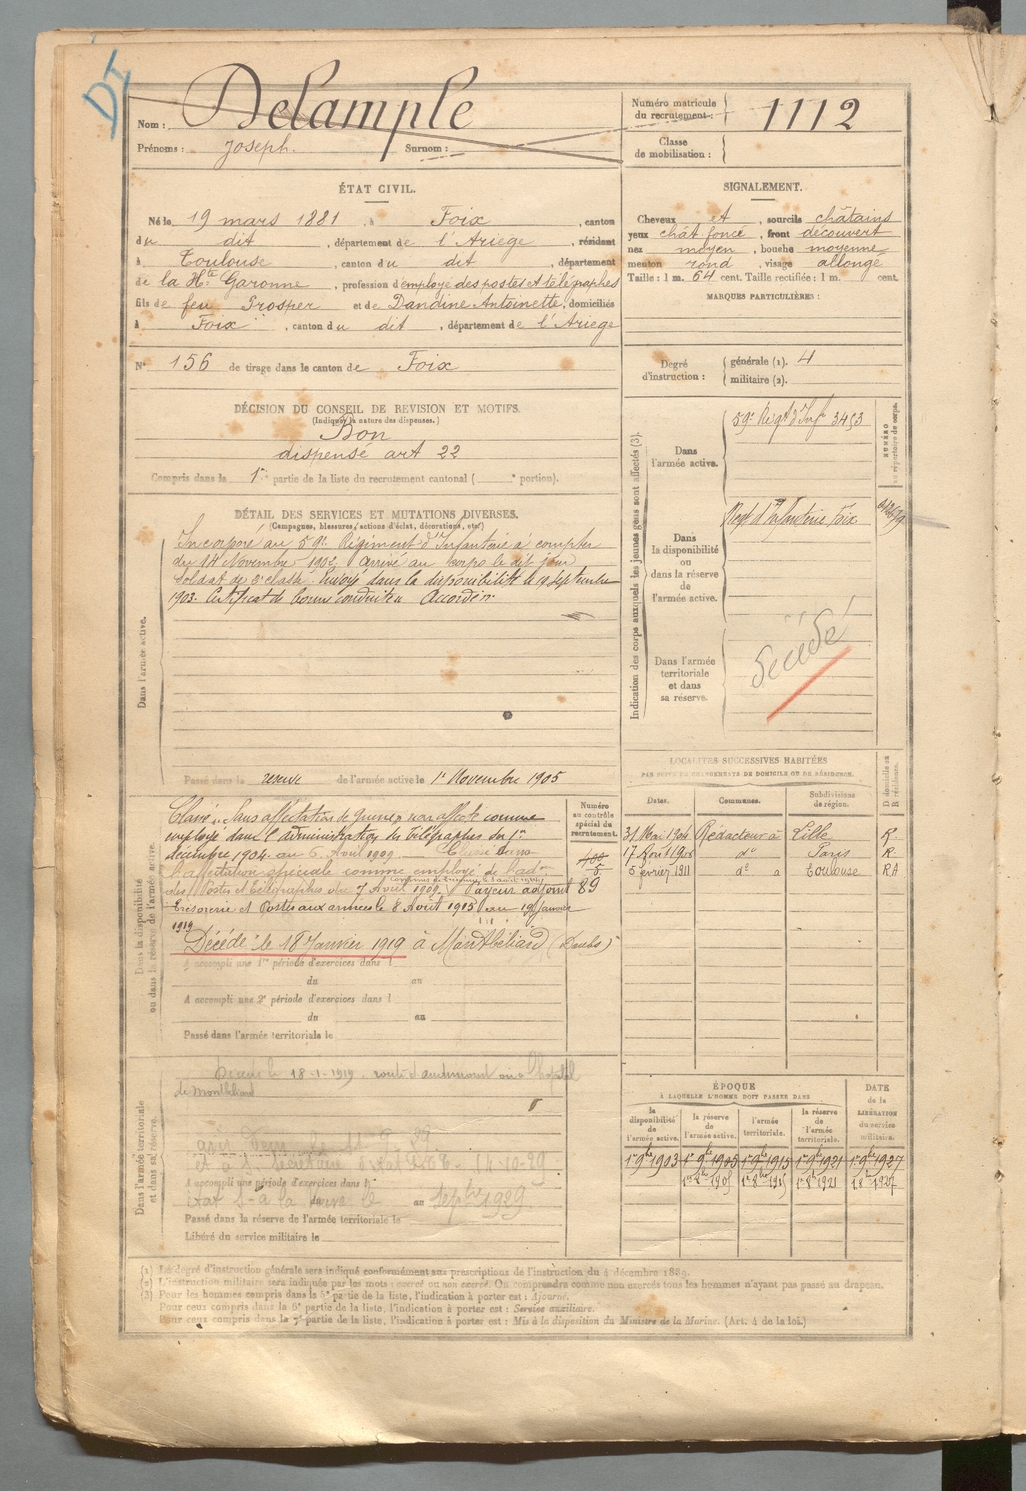 DI
Nom : Delample
Prénoms : Joseph. Surnom :
Numéro matricule du recrutement : 1112
Classe de mobilisation :
ÉTAT CIVIL.
Né le 19 mars 1881, à Foix, canton
du dit, département de l'Ariège, résidant
à Toulouse, canton du dit, département
de la Hte Garonne, profession d'employé des postes et télégraphes
fils de feu Prosper et de Dandine Antoinette, domiciliés
à Foix, canton du dit, département de l'Ariege
N° 156 de tirage dans le canton de Foix
SIGNALEMENT.
Cheveux et, sourcils châtains
yeux chât foncé, front découvert
nez moyen, bouche moyenne
menton rond, visage allongé
Taille : 1 m. 64 cent. Taille rectifiée : 1 m. cent.
MARQUES PARTICULIÈRES :
Degré d'instruction : générale (1). 4
militaire (2).
DÉCISION DU CONSEIL DE REVISION ET MOTIFS.
(Indiquer la nature des dispenses.)
Bon
dispensé art 22
Compris dans la 1re partie de la liste du recrutement cantonal ( e portion).
DÉTAIL DES SERVICES ET MUTATIONS DIVERSES.
(Campagnes, blessures, actions d'éclat, décorations, etc.)
Dans l'armée active.
Incorporé au 59e Régiment d'Infanterie à compter
du 14 Novembre 1902 arrivé au corps le dit jour
Soldat de 2e classe. Envoyé dans la disponibilité le 19 septembre
1903. Certificat de bonne conduite Accordé.
Passé dans la reserve de l'armée active le 1er Novembre 1905
Indication des corps auxquels les jeunes gens sont affectés (3).
NUMÉRO au répertoire du corps.
Dans l'armée active.
59e Regt d'Infie 3453
Dans la disponibilité ou dans la réserve de l'armée active.
Regt d'Infanterie Foix
Dans l'armée territoriale et dans sa réserve.
Décédé
LOCALITÉS SUCCESSIVES HABITÉES
PAR SUITE DE CHANGEMENTS DE DOMICILE OU DE RÉSIDENCE.
Dates. Communes. Subdivisions de région. D domicile ou R résidence.
31 Mai 1904 Rédacteur à Lille R.
17 Août 1908 do Paris R
5 février 1911 do à Toulouse RA
Dans la disponibilité ou dans la réserve de l'armée active.
Numéro au contrôle spécial du recrutement.
Classé "Sans affectation" de Guerre non affecté comme
employé dans l'administration des Télégraphes du 1er
décembre 1904 au 6 Août 1909. Classé dans
l'affectation spéciale comme employé de l'adon
des Postes et Télégraphes du 7 Août 1909. Payeur adjoint
Trésorerie et Postes aux armées le 8 Août 1915 au 19 Janvier
1919
89
Décédé le 18 Janvier 1919 à Montbéliard (Doubs)
A accompli une 1re période d'exercices dans l
du au
A accompli une 2e période d'exercices dans l
du au
Passé dans l'armée territoriale le
Dans l'armée territoriale et dans sa réserve.
18-1-1919
de Montbéliard
14-10-29
A accompli une période d'exercices dans l
du au
1929
Passé dans la réserve de l'armée territoriale le
Libéré du service militaire le
ÉPOQUE
À LAQUELLE L'HOMME DOIT PASSER DANS
DATE de la LIBÉRATION du service militaire.
la disponibilité de l'armée active. la réserve de l'armée active. l'armée territoriale. la réserve de l'armée territoriale.
1er 9bre 1903 1er 9bre 1905 1er 9bre 1915 1er 9bre 1921 1er 9bre 1927
1er 8bre 1905 1er 8bre 1915 1er 8bre 1921 1er 8bre 1927
(1) Le degré d'instruction générale sera indiqué conformément aux prescriptions de l'instruction du 4 décembre 1889.
(2) L'instruction militaire sera indiquée par les mots : exercé ou non exercé. On comprendra comme non exercés tous les hommes n'ayant pas passé au drapeau.
(3) Pour les hommes compris dans la 5e partie de la liste, l'indication à porter est : Ajourné.
Pour ceux compris dans la 6e partie de la liste, l'indication à porter est : Service auxiliaire.
Pour ceux compris dans la 7e partie de la liste, l'indication à porter est : Mis à la disposition du Ministre de la Marine. (Art. 4 de la loi.)